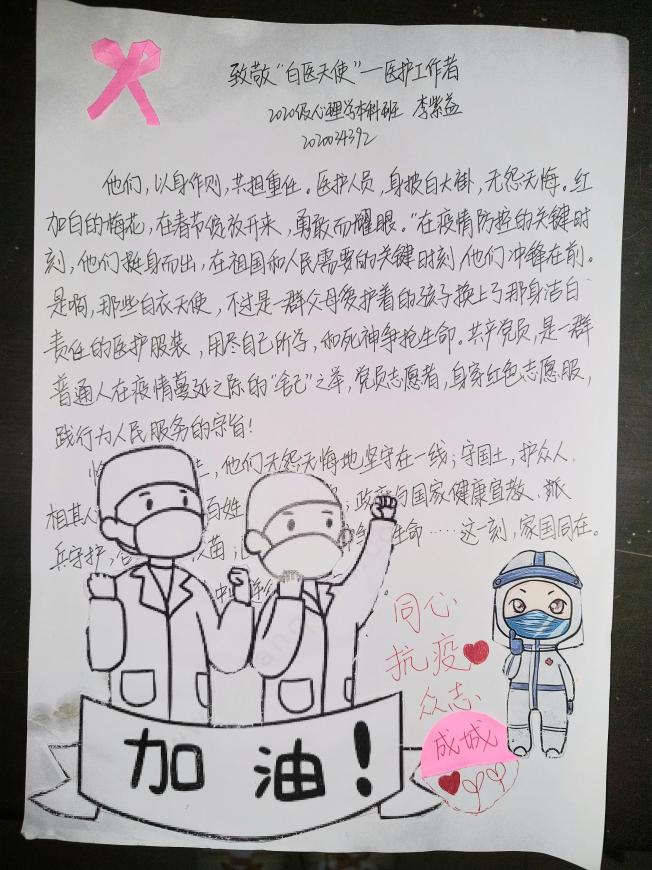 致敬“白医天使”—医护工作者
2020级心理学本科班 李紫益
2020034392
他们，以身作则，共担重任。医护人员，身披白大褂，无怨无悔。红
加白的梅花，在春节绽放开来，勇敢而耀眼。“在疫情防控的关键时
刻，他们挺身而出，在祖国和人民需要的关键时刻，他们冲锋在前。
是啊，那些白衣天使，不过是一群父母爱护着的孩子换上了那身洁白
责任的医护服装，用尽自己所学，和死神争抢生命。共产党员，是一群
普通人在疫情蔓延之际的“舍己”之举，党员志愿者，身穿红色志愿服，
践行为人民服务的宗旨！
，他们无怨无悔地坚守在一线；守国土，护众人，
相其 百姓 ；政府与国家健康宣教、派
兵守护， 苗； 生命……这一刻，家国同在。
中
同心
抗疫
众志
成城
加油！